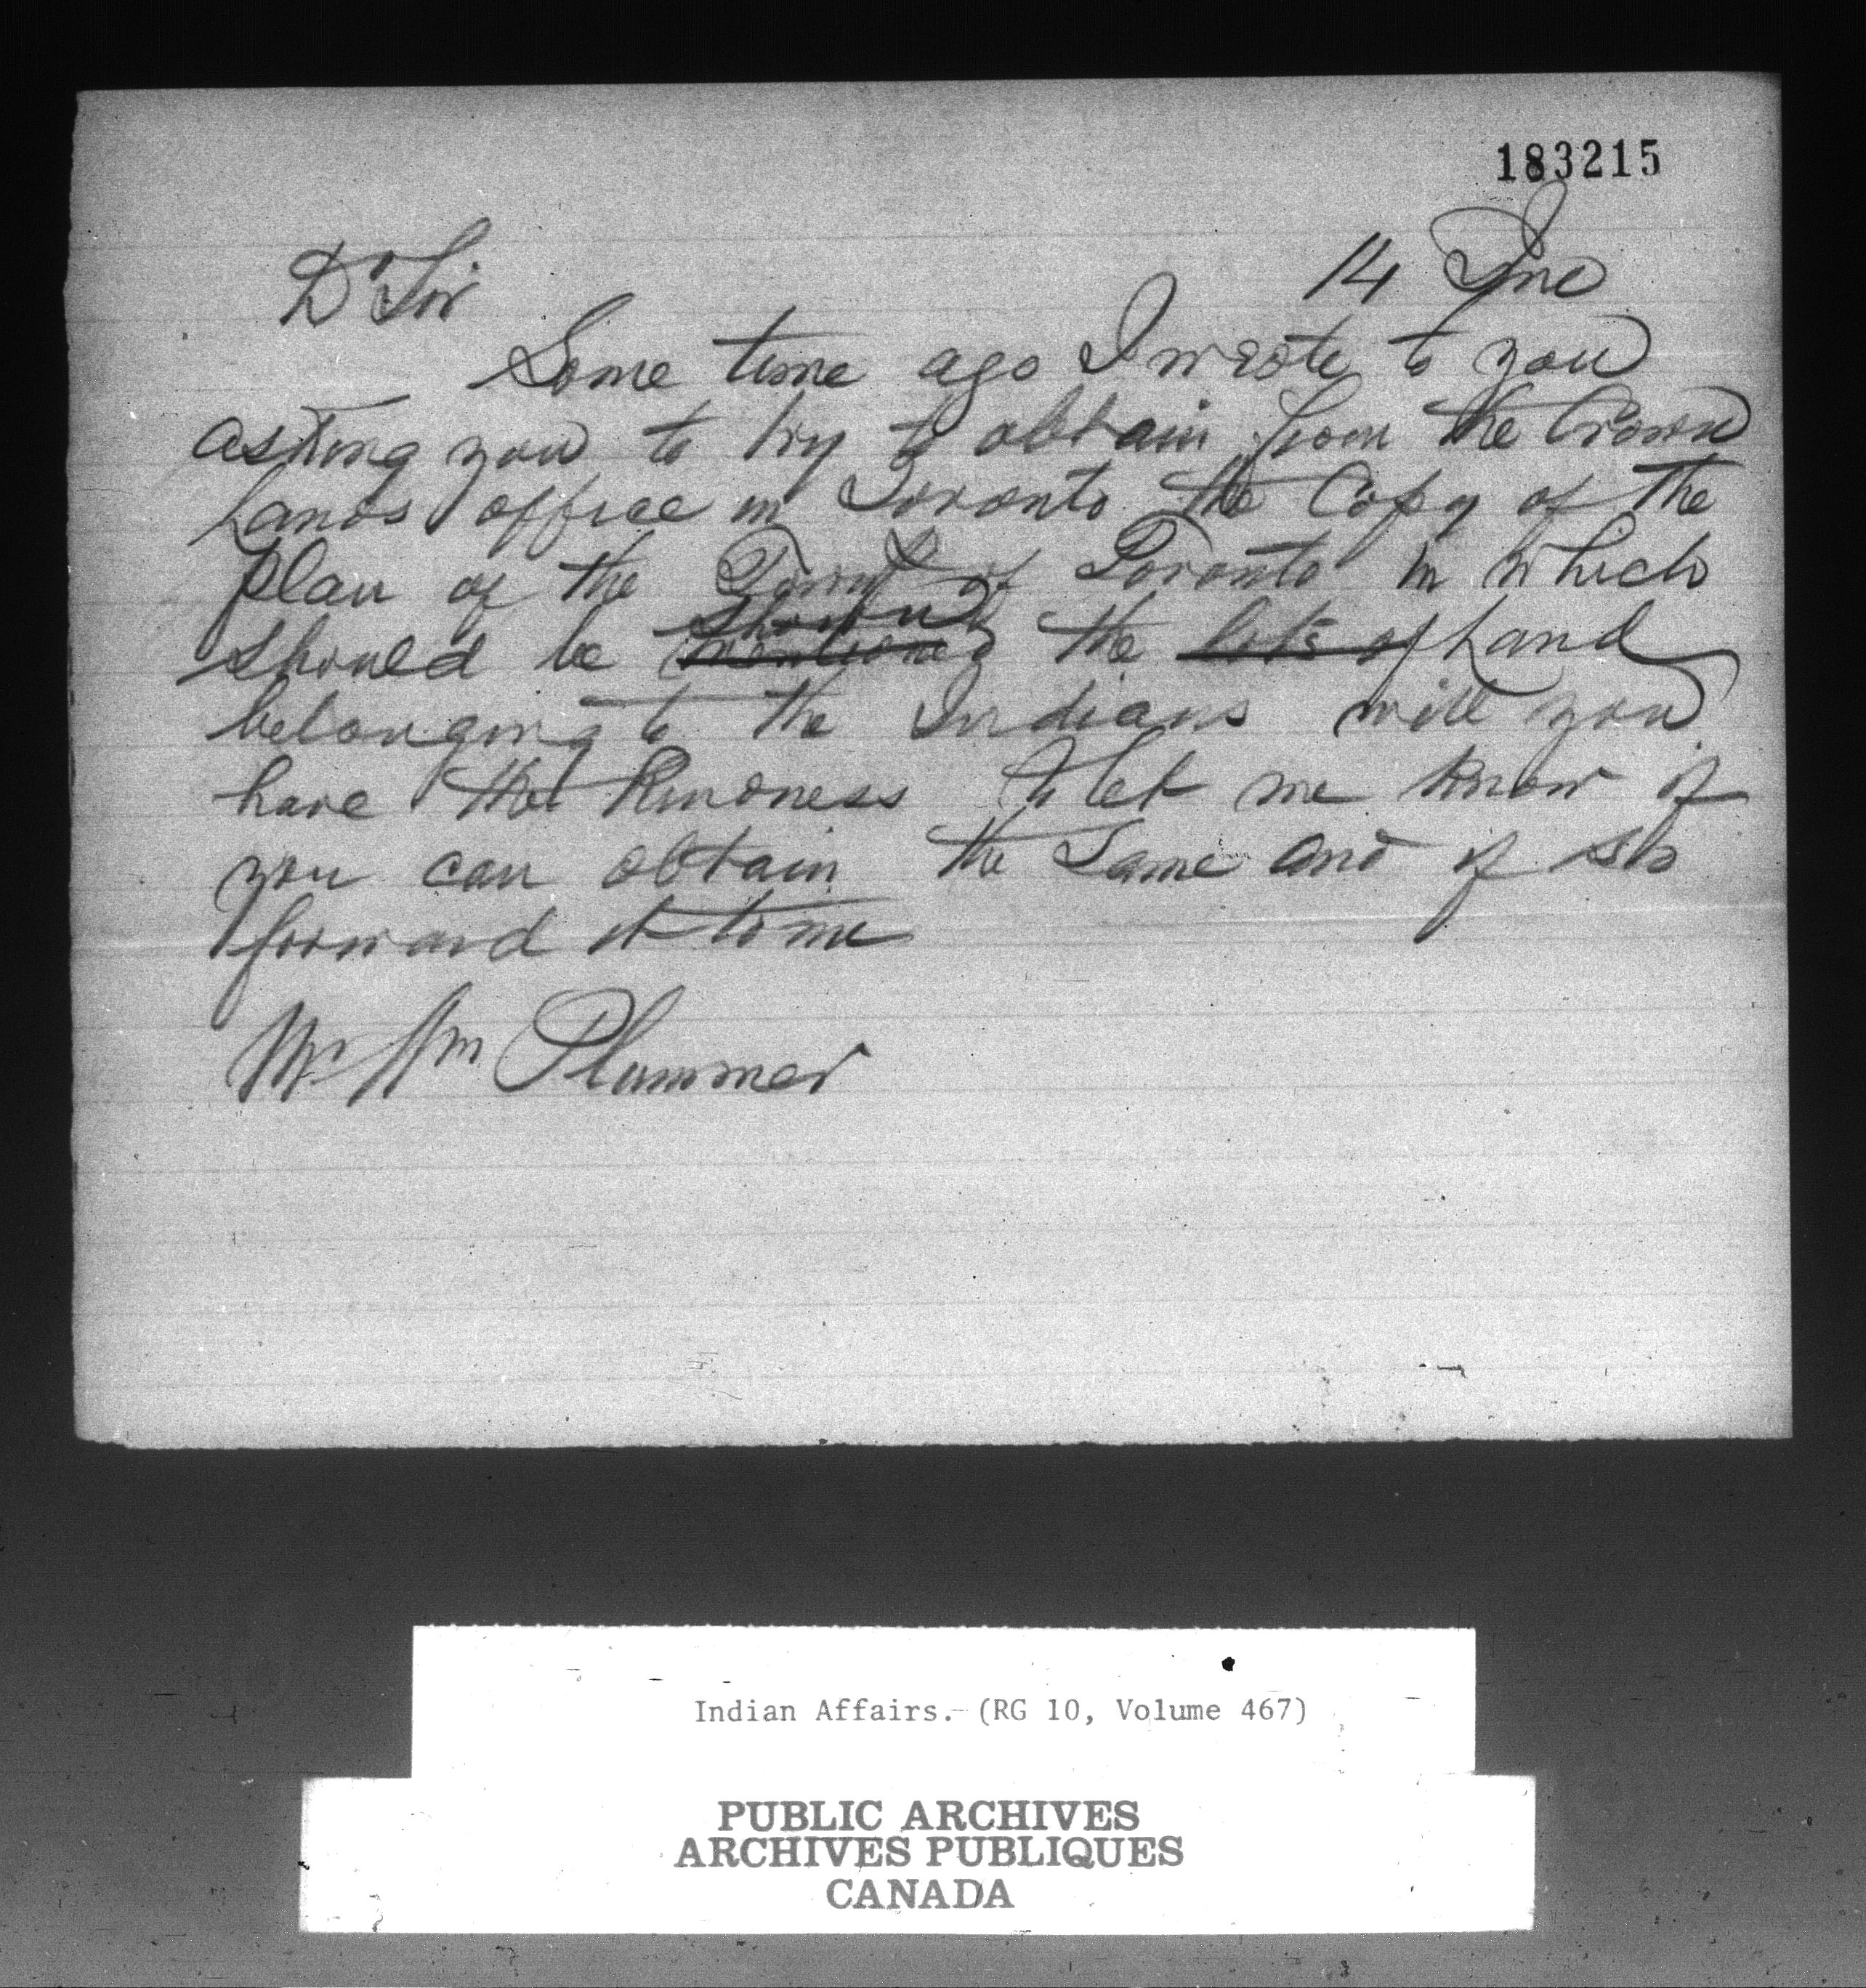 183215
14 June
Dr Sir
Some time ago I wrote to you
asking you to try to obtain from the Crown
Lands office in Toronto the Copy of the
plan of the of Toronto in which
should be shown mentioned the lots of Land
belonging to the Indians will you
have the kindness to let me know if
you can obtain the Same and if so
forward it to me
Mr Wm Plummer
Indian Affairs. (RG 10, Volume 467)
PUBLIC ARCHIVES
ARCHIVES PUBLIQUES
CANADA